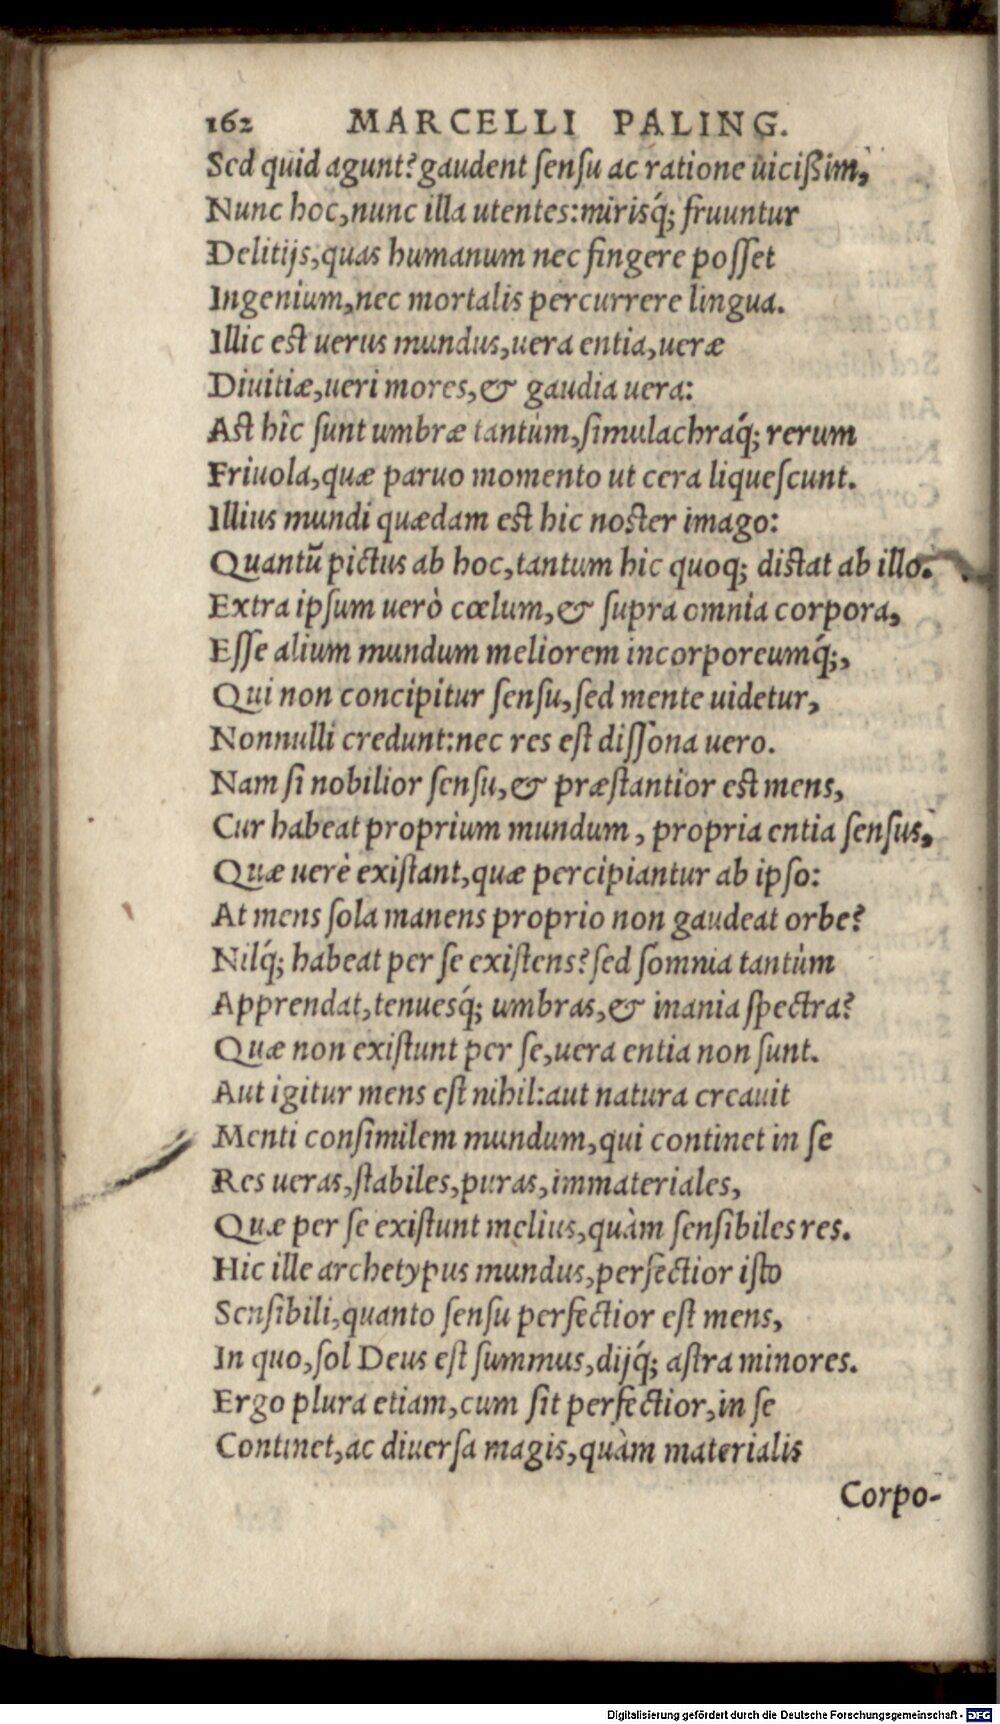 162 MARCELLI PALING.
Sed quid agunt? gaudent ſenſu ac ratione uicißim,
Nunc hoc, nunc illa utentes: mirisq́; fruuntur
Delitijs, quas humanum nec fingere poſſet
Ingenium, nec mortalis percurrere lingua.
Illic est uerus mundus, uera entia, ueræ
Diuitiæ, ueri mores, & gaudia uera:
Ast hîc ſunt umbræ tantùm, ſimulachraq́; rerum
Friuola, quæ paruo momento ut cera liqueſcunt.
Illius mundi quædam est hic noster imago:
Quantū pictus ab hoc, tantum hic quoq; distat ab illo.
Extra ipſum uerò cœlum, & ſupra omnia corpora,
Eſſe alium mundum meliorem incorporeumq́;,
Qui non concipitur ſenſu, ſed mente uidetur,
Nonnulli credunt: nec res eſt diſſona uero.
Nam ſi nobilior ſenſu, & præſtantior est mens,
Cur habeat proprium mundum, propria entia ſenſus,
Quæ uerè exiſtant, quæ percipiantur ab ipſo:
At mens ſola manens proprio non gaudeat orbe?
Nilq́; habeat per ſe exiſtens? ſed ſomnia tantùm
Apprendat, tenuesq́; umbras, & inania ſpectra?
Quæ non exiſtunt per ſe, uera entia non ſunt.
Aut igitur mens eſt nihil: aut natura creauit
Menti conſimilem mundum, qui continet in ſe
Res ueras, ſtabiles, puras, immateriales,
Quæ per ſe exiſtunt melius, quàm ſenſibiles res.
Hic ille archetypus mundus, perfectior iſto
Senſibili, quanto ſenſu perfectior eſt mens,
In quo, ſol Deus eſt ſummus, dijq́; aſtra minores.
Ergo plura etiam, cum ſit perfectior, in ſe
Continet, ac diuerſa magis, quàm materialis
Corpo-
Digitalisierung gefördert durch die Deutsche Forschungsgemeinschaft - DFG